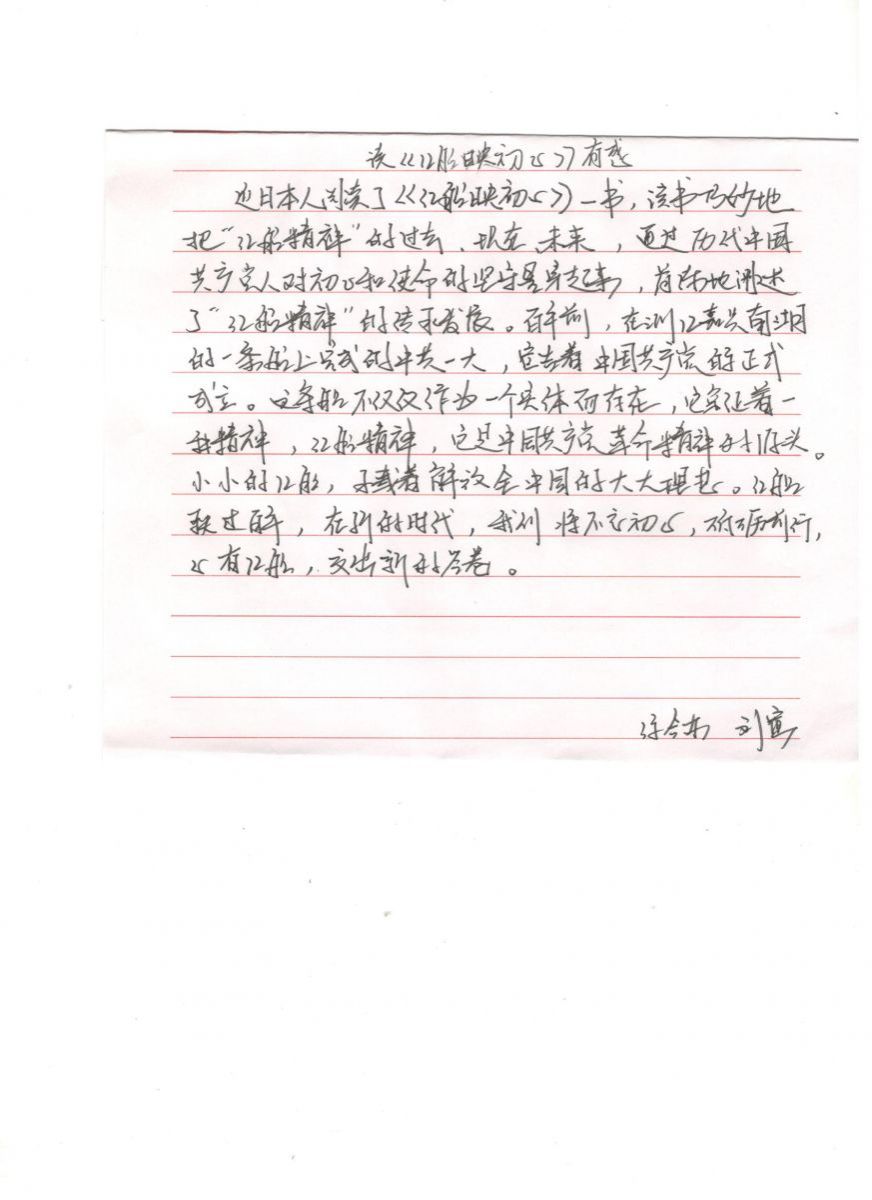 读《红船映初心》有感
近日本人阅读了《红船映初心》一书，该书巧妙地
把“红船精神”的过去、现在、未来，通过历代中国
共产党人对初心和使命的坚守串起来，简洁地阐述
了“红船精神”的传承发展。百年前，在浙江嘉兴南湖
的一条船上完成的中共一大，宣告着中国共产党的正式
成立。这条船不仅仅作为一个实体而存在，它象征着一
种精神，红船精神，它是中国共产党革命精神的源头。
小小的红船，承载着解放全中国的大大理想。红船
驶过百年，在新的时代，我们将不忘初心，砥砺前行，
心有红船，交出新的答卷。
刘寅